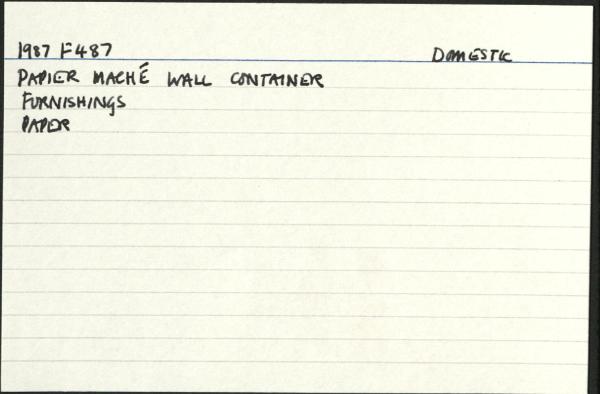 1987 F487 DOMESTIC
PAPIER MACHÉ WALL CONTAINER
FURNISHINGS
PAPER